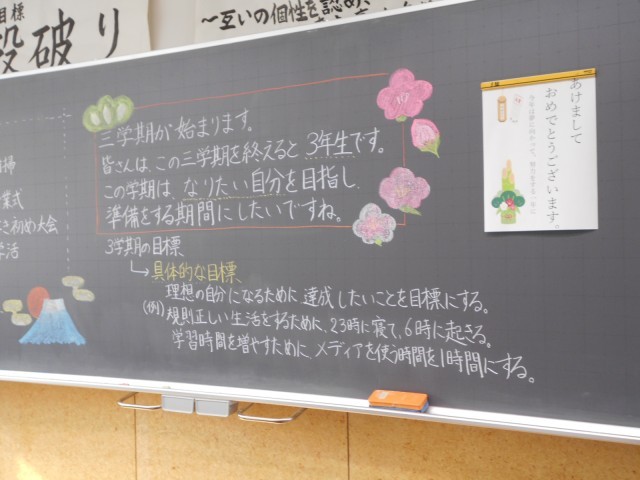 目標
殻破り
～互いの個性を認め、
三学期が始まります。
皆さんは、この三学期を終えると3年生です。
この学期は、なりたい自分を目指し、
準備をする期間にしたいですね。
3学期の目標
→具体的な目標
理想の自分になるために達成したいことを目標にする。
(例)規則正しい生活をするために、23時に寝て、6時に起きる。
学習時間を増やすために、メディアを使う時間を1時間にする。
業式
き初め大会
学活
あけまして
おめでとうございます。